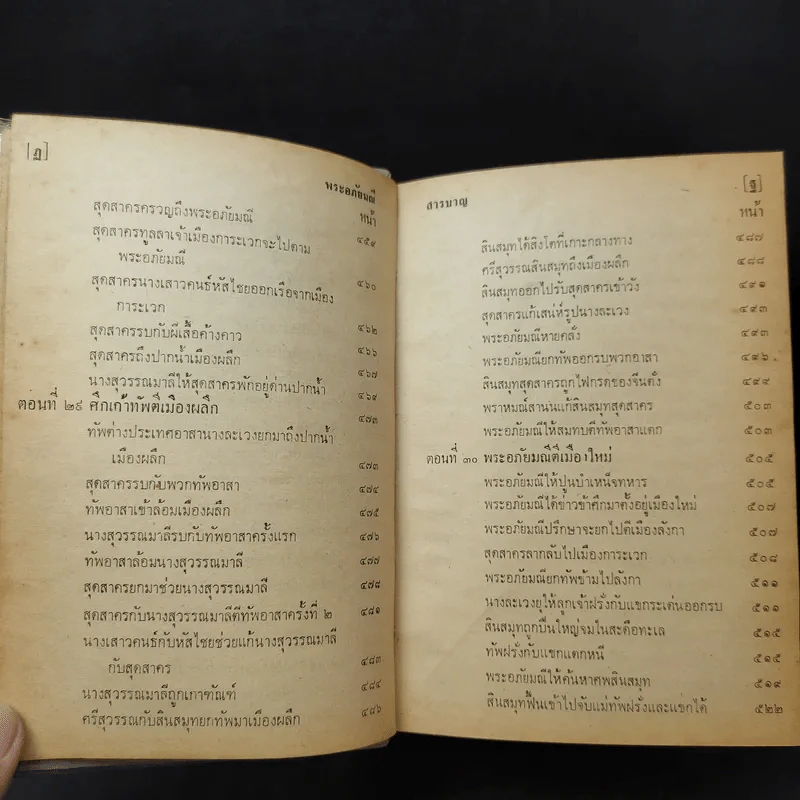 [ฎ]
พระอภัยมณี
หน้า
สุดสาครครวญถึงพระอภัยมณี ๔๕๙
สุดสาครทูลลาเจ้าเมืองการะเวกจะไปตาม
พระอภัยมณี ๔๖๐
สุดสาครนางเสาวคนธ์หัสไชยออกเรือจากเมือง
การะเวก ๔๖๒
สุดสาครรบกับผีเสื้อค้างคาว ๔๖๖
สุดสาครถึงปากน้ำเมืองผลึก ๔๖๗
นางสุวรรณมาลีให้สุดสาครพักอยู่ด่านปากน้ำ ๔๖๙
ตอนที่ ๒๙ ศึกเก้าทัพตีเมืองผลึก ๔๗๓
ทัพต่างประเทศอาสานางละเวงยกมาถึงปากน้ำ
เมืองผลึก ๔๗๓
สุดสาครรบกับพวกทัพอาสา ๔๗๔
ทัพอาสาเข้าล้อมเมืองผลึก ๔๗๕
นางสุวรรณมาลีรบกับทัพอาสาครั้งแรก ๔๗๖
ทัพอาสาล้อมนางสุวรรณมาลี ๔๗๗
สุดสาครยกมาช่วยนางสุวรรณมาลี ๔๗๘
สุดสาครกับนางสุวรรณมาลีตีทัพอาสาครั้งที่ ๒ ๔๘๑
นางเสาวคนธ์กับหัสไชยช่วยแก้นางสุวรรณมาลี
กับสุดสาคร ๔๘๓
นางสุวรรณมาลีถูกเกาทัณฑ์ ๔๘๔
ศรีสุวรรณกับสินสมุทยกทัพมาเมืองผลึก ๔๘๖
สารบาญ
[ฐ]
หน้า
สินสมุทได้สิงโตที่เกาะกลางทาง ๔๘๗
ศรีสุวรรณสินสมุทถึงเมืองผลึก ๔๘๘
สินสมุทออกไปรับสุดสาครเข้าวัง ๔๙๑
สุดสาครแก้เสน่ห์รูปนางละเวง ๔๙๓
พระอภัยมณีหายคลั่ง ๔๙๓
พระอภัยมณียกทัพออกรบพวกอาสา ๔๙๖
สินสมุทสุดสาครถูกไฟกรดของจีนตั๋ง ๔๙๙
พราหมณ์สานนแก้สินสมุทสุดสาคร ๕๐๓
พระอภัยมณีให้สมทบตีทัพอาสาแตก ๕๐๓
ตอนที่ ๓๐ พระอภัยมณีตีเมืองใหม่ ๕๐๕
พระอภัยมณีให้ปูนบำเหน็จทหาร ๕๐๕
พระอภัยมณีได้ข่าวข้าศึกมาตั้งอยู่เมืองใหม่ ๕๐๗
พระอภัยมณีปรึกษาจะยกไปตีเมืองลังกา ๕๐๗
สุดสาครลากลับไปเมืองการะเวก ๕๐๘
พระอภัยมณียกทัพข้ามไปลังกา ๕๑๑
นางละเวงยุให้ลูกเจ้าฝรั่งกับแขกระเด่นออกรบ ๕๑๑
สินสมุทถูกปืนใหญ่จมในสะดือทะเล ๕๑๕
ทัพฝรั่งกับแขกแตกหนี ๕๑๕
พระอภัยมณีให้ค้นหาศพสินสมุท ๕๑๙
สินสมุทฟื้นเข้าไปจับแม่ทัพฝรั่งและแขกได้ ๕๒๒